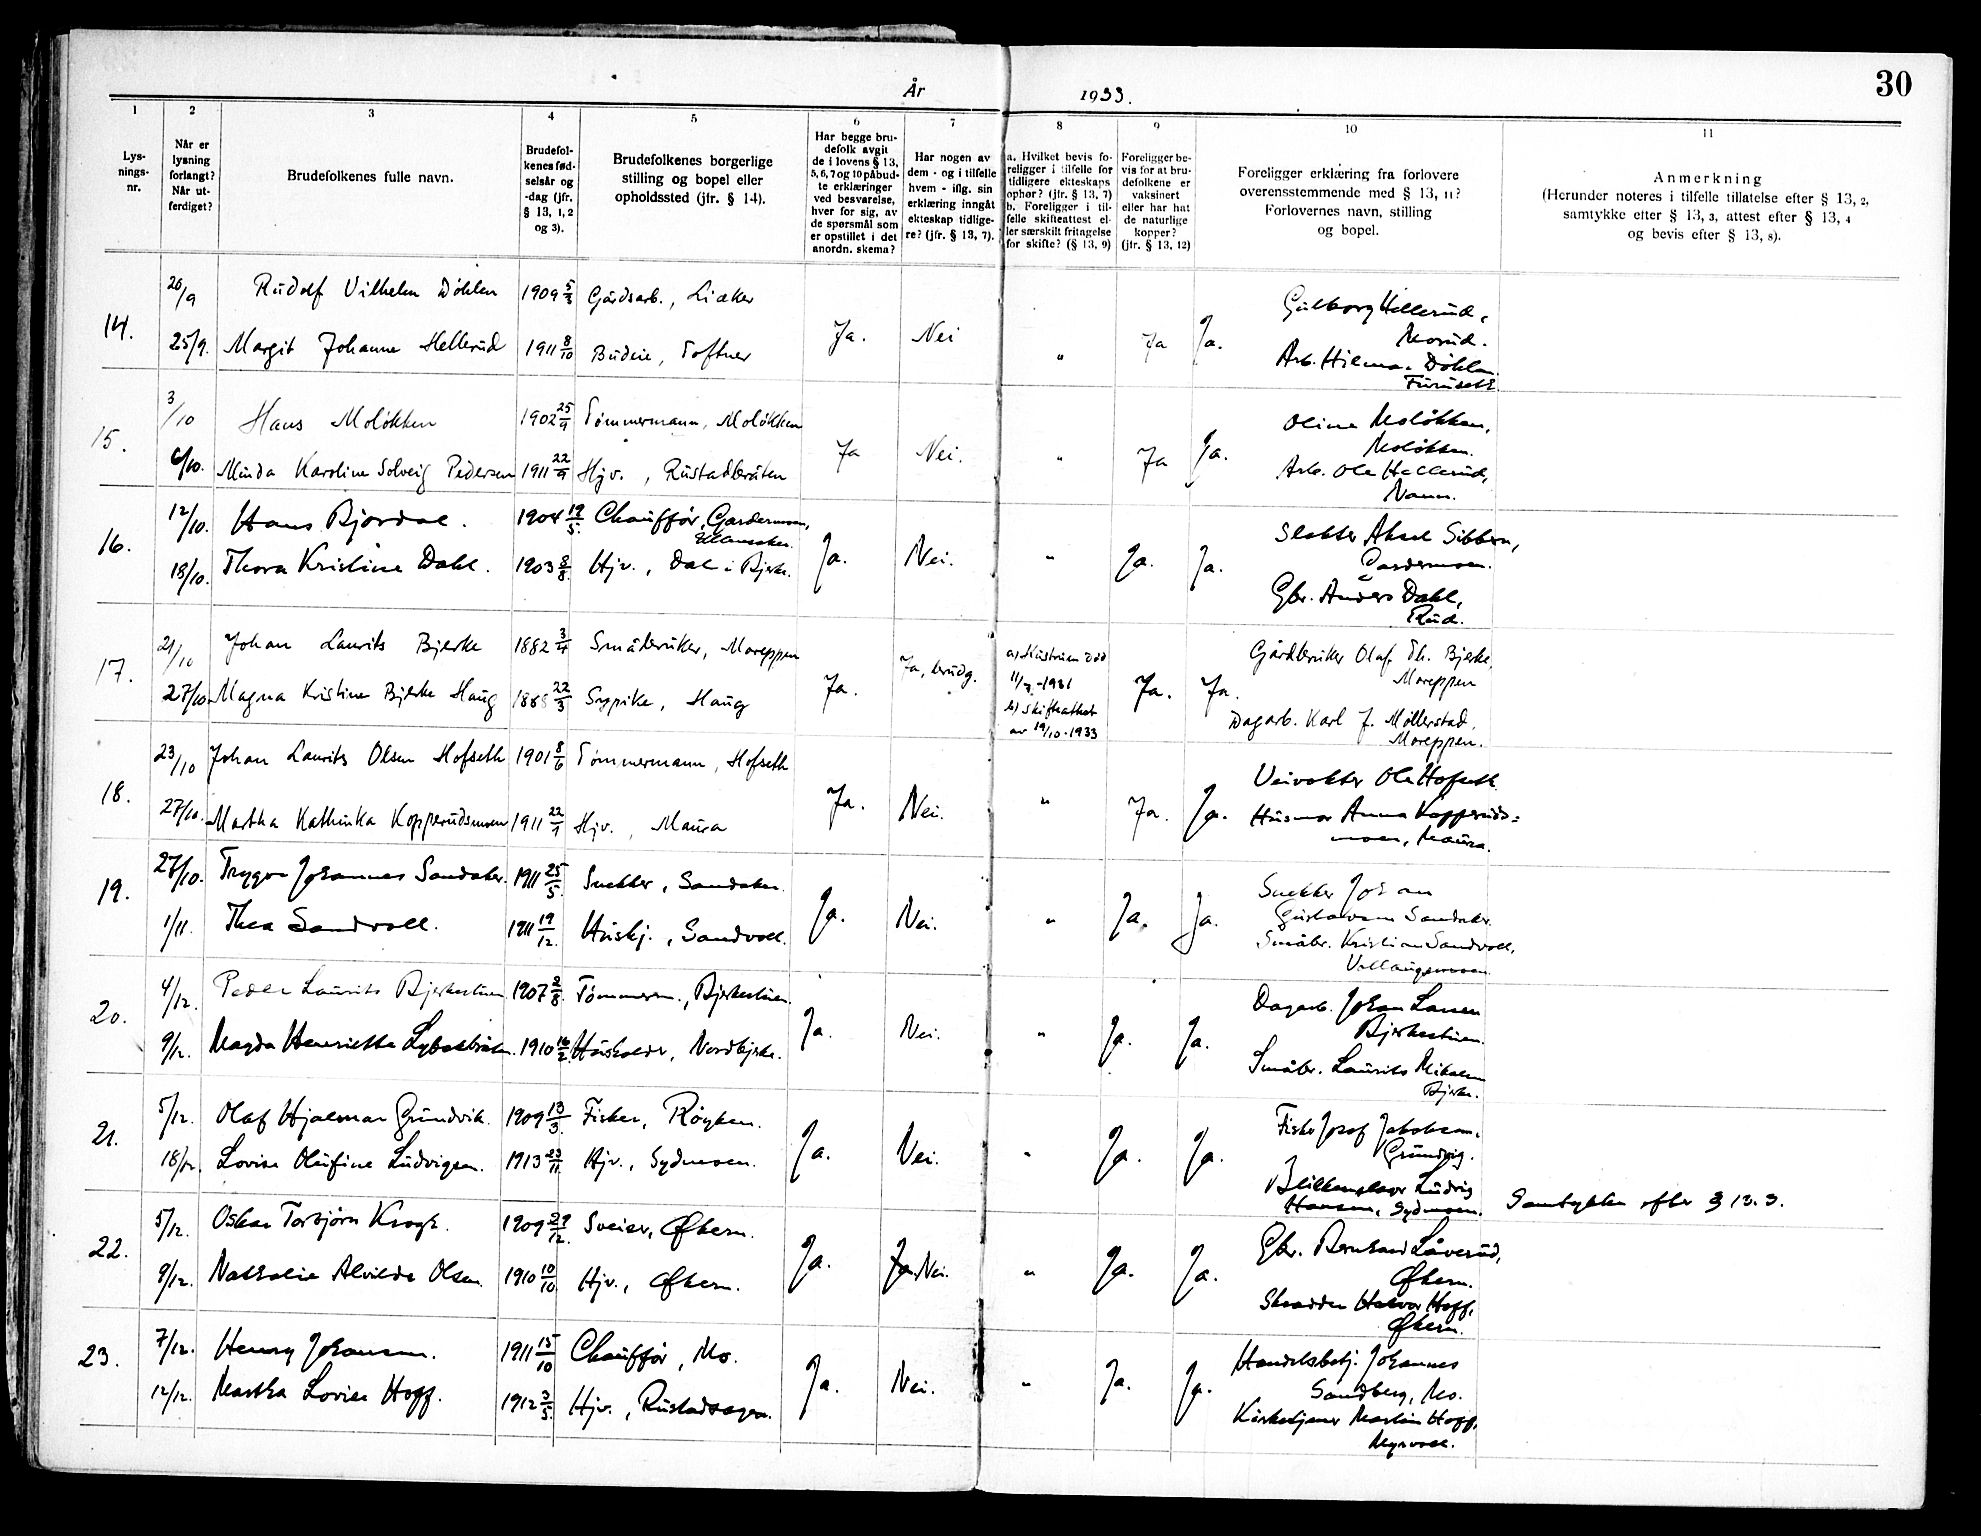 30
År 1933.
1 2 3 4 5 6 7 8 9 10 11
Lys-
nings-
nr.
Når er
lysning
forlangt?
Når ut-
ferdiget?
Brudefolkenes fulle navn.
Brudefol-
kenes fød-
selsår og
-dag (jfr.
§ 13, 1, 2
og 3).
Brudefolkenes borgerlige
stilling og bopel eller
opholdssted (jfr. § 14).
Har begge bru-
defolk avgit
de i lovens § 13,
5, 6, 7 og 10 påbud-
te erklæringer
ved besvarelse,
hver for sig, av
de spørsmål som
er opstillet i det
anordn. skema?
Har nogen av
dem - og i tilfelle
hvem - iflg. sin
erklæring inngåt
ekteskap tidlige-
re? (jfr. § 13, 7).
a. Hvilket bevis fo-
religger i tilfelle for
tidligere ekteskaps
ophør? (jfr. § 13, 7)
b. Foreligger i til-
felle skifteattest el-
ler særskilt fritagelse
for skifte? (§ 13, 9)
Foreligger be-
vis for at bru-
defolkene er
vaksinert
eller har hat
de naturlige
kopper?
(jfr. § 13, 12)
Foreligger erklæring fra forlovere
overensstemmende med § 13, 11?
Forlovernes navn, stilling
og bopel.
Anmerkning
(Herunder noteres i tilfelle tillatelse efter § 13, 2,
samtykke efter § 13, 3, attest efter § 13, 4
og bevis efter § 13, 8).
14.
20/9 Rudolf Vilhelm Døhlen 1909 5/3 Gårdsarb., Liaker
25/9. Margit Johanne Hellerud 1911 8/10 Budeie, Toftner
Ja. Nei " Ja Ja.
Gulborg Hellerud,
Morud.
Arb. Hilmar Døhlen
Furuseth
15.
3/10 Hans Moløkken 1902 25/9 Tømmermann, Moløkken
6/10. Minda Karoline Solveig Pedersen 1911 22/9 Hjv., Rustadbråten
Ja Nei. " Ja Ja.
Oline Moløkken,
Moløkken.
Arb. Ole Hellerud,
Nann.
16.
12/10. Hans Bjørdal. 1904 19/5. Chauffør, Gardermoen,
Ullensaker.
18/10. Thora Kristine Dahl. 1903 8/8. Hjv., Dal i Bjerke.
Ja. Nei. " Ja. Ja.
Slakter Aksel Sibbern,
Gardermoen.
Gbr. Anders Dahl,
Rud.
17.
21/10 Johan Laurits Bjerke 1882 3/4 Småbruker, Moreppen
27/10. Magna Kristine Bjerke Haug 1888 22/3 Sypike, Haug
Ja. Ja, brudg.
a) Hustruen død
11/7-1931
b) Skifteattest
av 19/10-1933
Ja. Ja.
Gårdbruker Olaf Th. Bjerke,
Moreppen
Dagarb. Karl J. Møllerstad,
Moreppen.
18.
23/10 Johan Laurits Olsen Hofseth 1901 8/6 Tømmermann, Hofseth
27/10. Martha Kathinka Kopperudsmoen 1911 22/9 Hjv., Maura
Ja. Nei. " Ja. Ja.
Veivokter Ole Hofseth
Husmor Anna Kopperuds-
moen, Maura.
19.
27/10. Trygve Johannes Sandaker. 1911 25/5. Snekker, Sandaker.
1/11. Thea Sandvoll. 1911 19/12. Hushj., Sandvoll.
Ja. Nei. " Ja. Ja.
Snekker Johan
Gustavsen Sandaker.
Småbr. Kristian Sandvoll,
20.
4/12. Peder Laurits Bjerkestuen 1907 2/8. Tømmerm., Bjerkestuen.
9/12. Magda Henriette 1910 16/2. Husholder, Nordbjerke.
Ja. Nei. " Ja. Ja.
Dagarb. Johan Larsen
Bjerkestuen.
Småbr. Laurits Mikalsen
Bjerke.
21.
5/12. Olaf Hjalmar Grundvik. 1909 13/3. Fisker, Røyken.
18/12. Lovise Olufine Ludvigsen. 1913 23/11. Hjv., Sydmoen.
Ja. Nei. " Ja. Ja.
Fisker Josef Jakobsen,
Grundvig.
Blikkenslager Ludvig
Hansen, Sydmoen.
Samtykke efter § 13.3.
22.
5/12. Oskar Torbjørn Krogh. 1909 29/12. Sveiser, Økern.
9/12. Nathalie Alvilde Olsen. 1910 10/10. Hjv., Økern.
Ja. Ja. Nei. " Ja. Ja.
Gbr. Bernhard Låverud,
Økern.
Skredder Halvor Hoff,
Økern.
23.
7/12. Henry Johansen. 1911 15/10 Chauffør, Mo.
12/12. Martha Lovise Hoff. 1912 3/5. Hjv., Rustadhagen.
Ja. Nei. " Ja. Ja.
Handelsbetj. Johannes
Sandberg, Mo.
Kirketjener Martin Hoff,
Myrvoll.